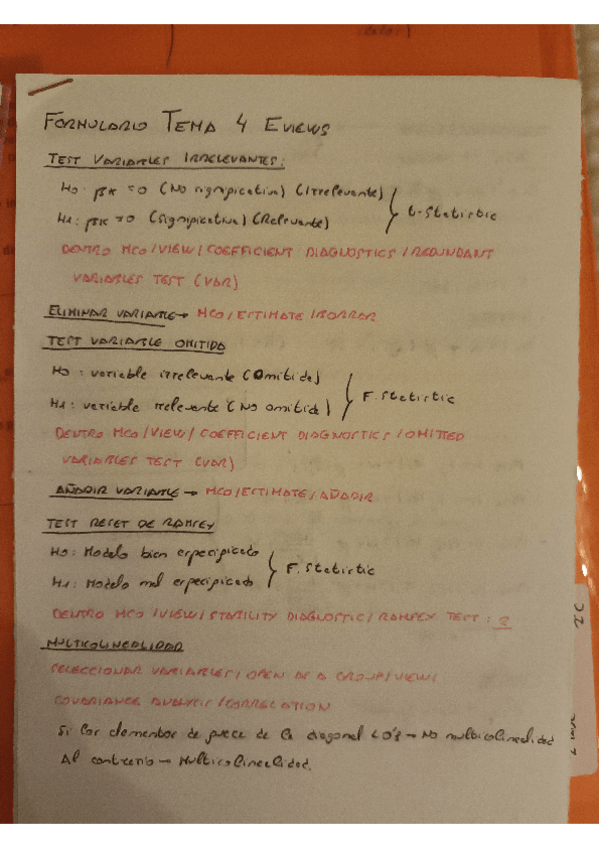 FORMULARIO TEMA 4 EVIEWS
TEST VARIABLES IRRELEVANTES:
H0: βK = 0 (No significativa) (Irrelevante)
H1: βK ≠ 0 (Significativa) (Relevante)
t-Statistic
DENTRO MCO/VIEW/COEFFICIENT DIAGNOSTICS/REDUNDANT
VARIABLES TEST (VAR)
ELIMINAR VARIABLE → MCO/ESTIMATE/BORRAR
TEST VARIABLE OMITIDA
H0: variable irrelevante (Omitida)
H1: variable relevante (No omitida)
F. Statistic
DENTRO MCO/VIEW/COEFFICIENT DIAGNOSTICS/OMITTED
VARIABLES TEST (VAR)
AÑADIR VARIABLE → MCO/ESTIMATE/AÑADIR
TEST RESET DE RAMSEY
H0: Modelo bien especificado
H1: Modelo mal especificado
F. Statistic
DENTRO MCO/VIEW/STABILITY DIAGNOSTIC/RAMSEY TEST:
MULTICOLINEALIDAD
SELECCIONAR VARIABLES/OPEN AS A GROUP/VIEW/
COVARIANCE ANALYSIS/CORRELATION
Si los elementos de fuera de la diagonal < 0'8 → No multicolinealidad
Al contrario → Multicolinealidad.